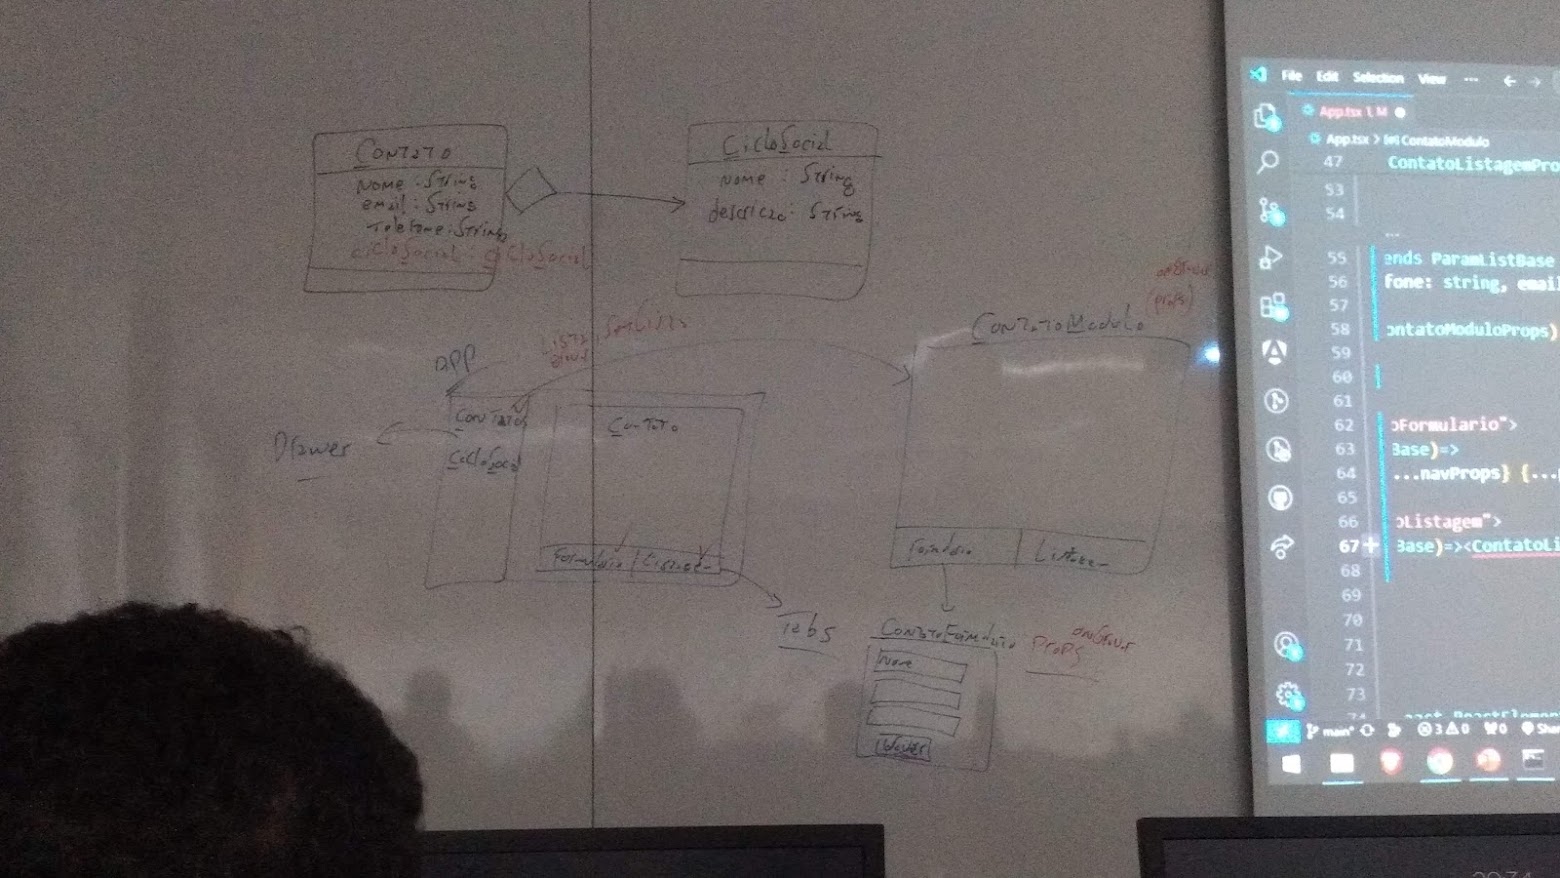 Contato
nome : String
email : String
Telefone : String
cicloSocial : CicloSocial
CicloSocial
nome : String
descricao : String
APP
Lista
setLista
Drawer
Contato
CicloSocial
Contato
Formulário
Listagem
Tabs
ContatoModulo
(props)
Formulário
Listagem
ContatoFormulario
props
Nome
File Edit Selection View ...
App.tsx 1, M
App.tsx > ContatoModulo
47 ContatoListagemPro
53
54
...
55 ends ParamListBase
56 fone: string, email
57
58 ontatoModuloProps)
59
60
61
62 oFormulario">
63 Base)=>
64 ...navProps} {...
65
66 oListagem">
67 Base)=><ContatoLi
68
69
70
71
72
73
74
main* 3 0 0 Sha